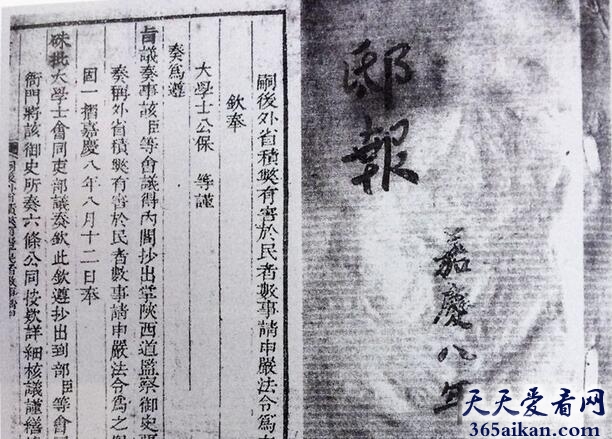 邸報
嘉慶八年
嗣後外省積獘有害於民者數事請申嚴法令爲
欽奉
大學士公保 等謹
奏爲遵
旨議奏事該臣等會議得內閣抄出掌陝西道監察御史
奏稱外省積獘有害於民者數事請申嚴法令爲之
因一摺嘉慶八年八月十二日奉
硃批大學士會同吏部議奏欽此欽遵抄出到部臣等會
衙門將該御史所奏六條公同按欵詳細核議謹繕
天天爱看网
365aikan.com